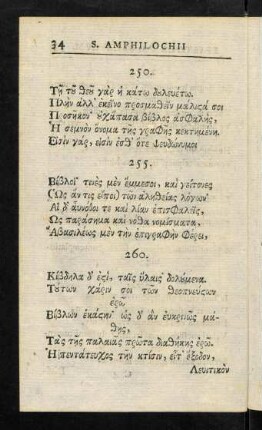 34 S. AMPHILOCHII
250.
Τῇ τοῦ Θεοῦ γὰρ ἡ κάτω δουλευέτω.
Πλὴν ἀλλ' ἐκεῖνο προσμαθεῖν μάλιστά σοι
Προσῆκον· οὐχ ἅπασα βίβλος ἀσφαλὴς,
Ἡ σεμνὸν ὄνομα τῆς γραφῆς κεκτημένη.
Εἰσὶν γὰρ, εἰσὶν ἔσθ' ὅτε ψευδώνυμοι
255.
Βίβλοι· τινὲς μὲν ἔμμεσοι, καὶ γείτονες
(Ὡς ἄν τις εἴποι) τῶν ἀληθείας λόγων·
Αἱ δ' ἄρα νόθοι τε καὶ λίαν ἐπισφαλεῖς,
Ὡς παράσημα καὶ νόθα νομίσματα,
Ἃ βασιλέως μὲν τὴν ἐπιγραφὴν φέρει,
260.
Κίβδηλα δ' ἐστὶ, ταῖς ὕλαις δολούμενα.
Τούτων χάριν σοι τῶν θεοπνεύστων
ἐρῶ
Βίβλων ἑκάστην· ὡς δ' ἂν εὐκρινῶς μά-
θῃς,
Τὰς τῆς παλαιᾶς πρῶτα διαθήκης ἐρῶ.
Ἡ πεντάτευχος τὴν κτίσιν, εἶτ' ἔξοδον,
Λευιτικὸν